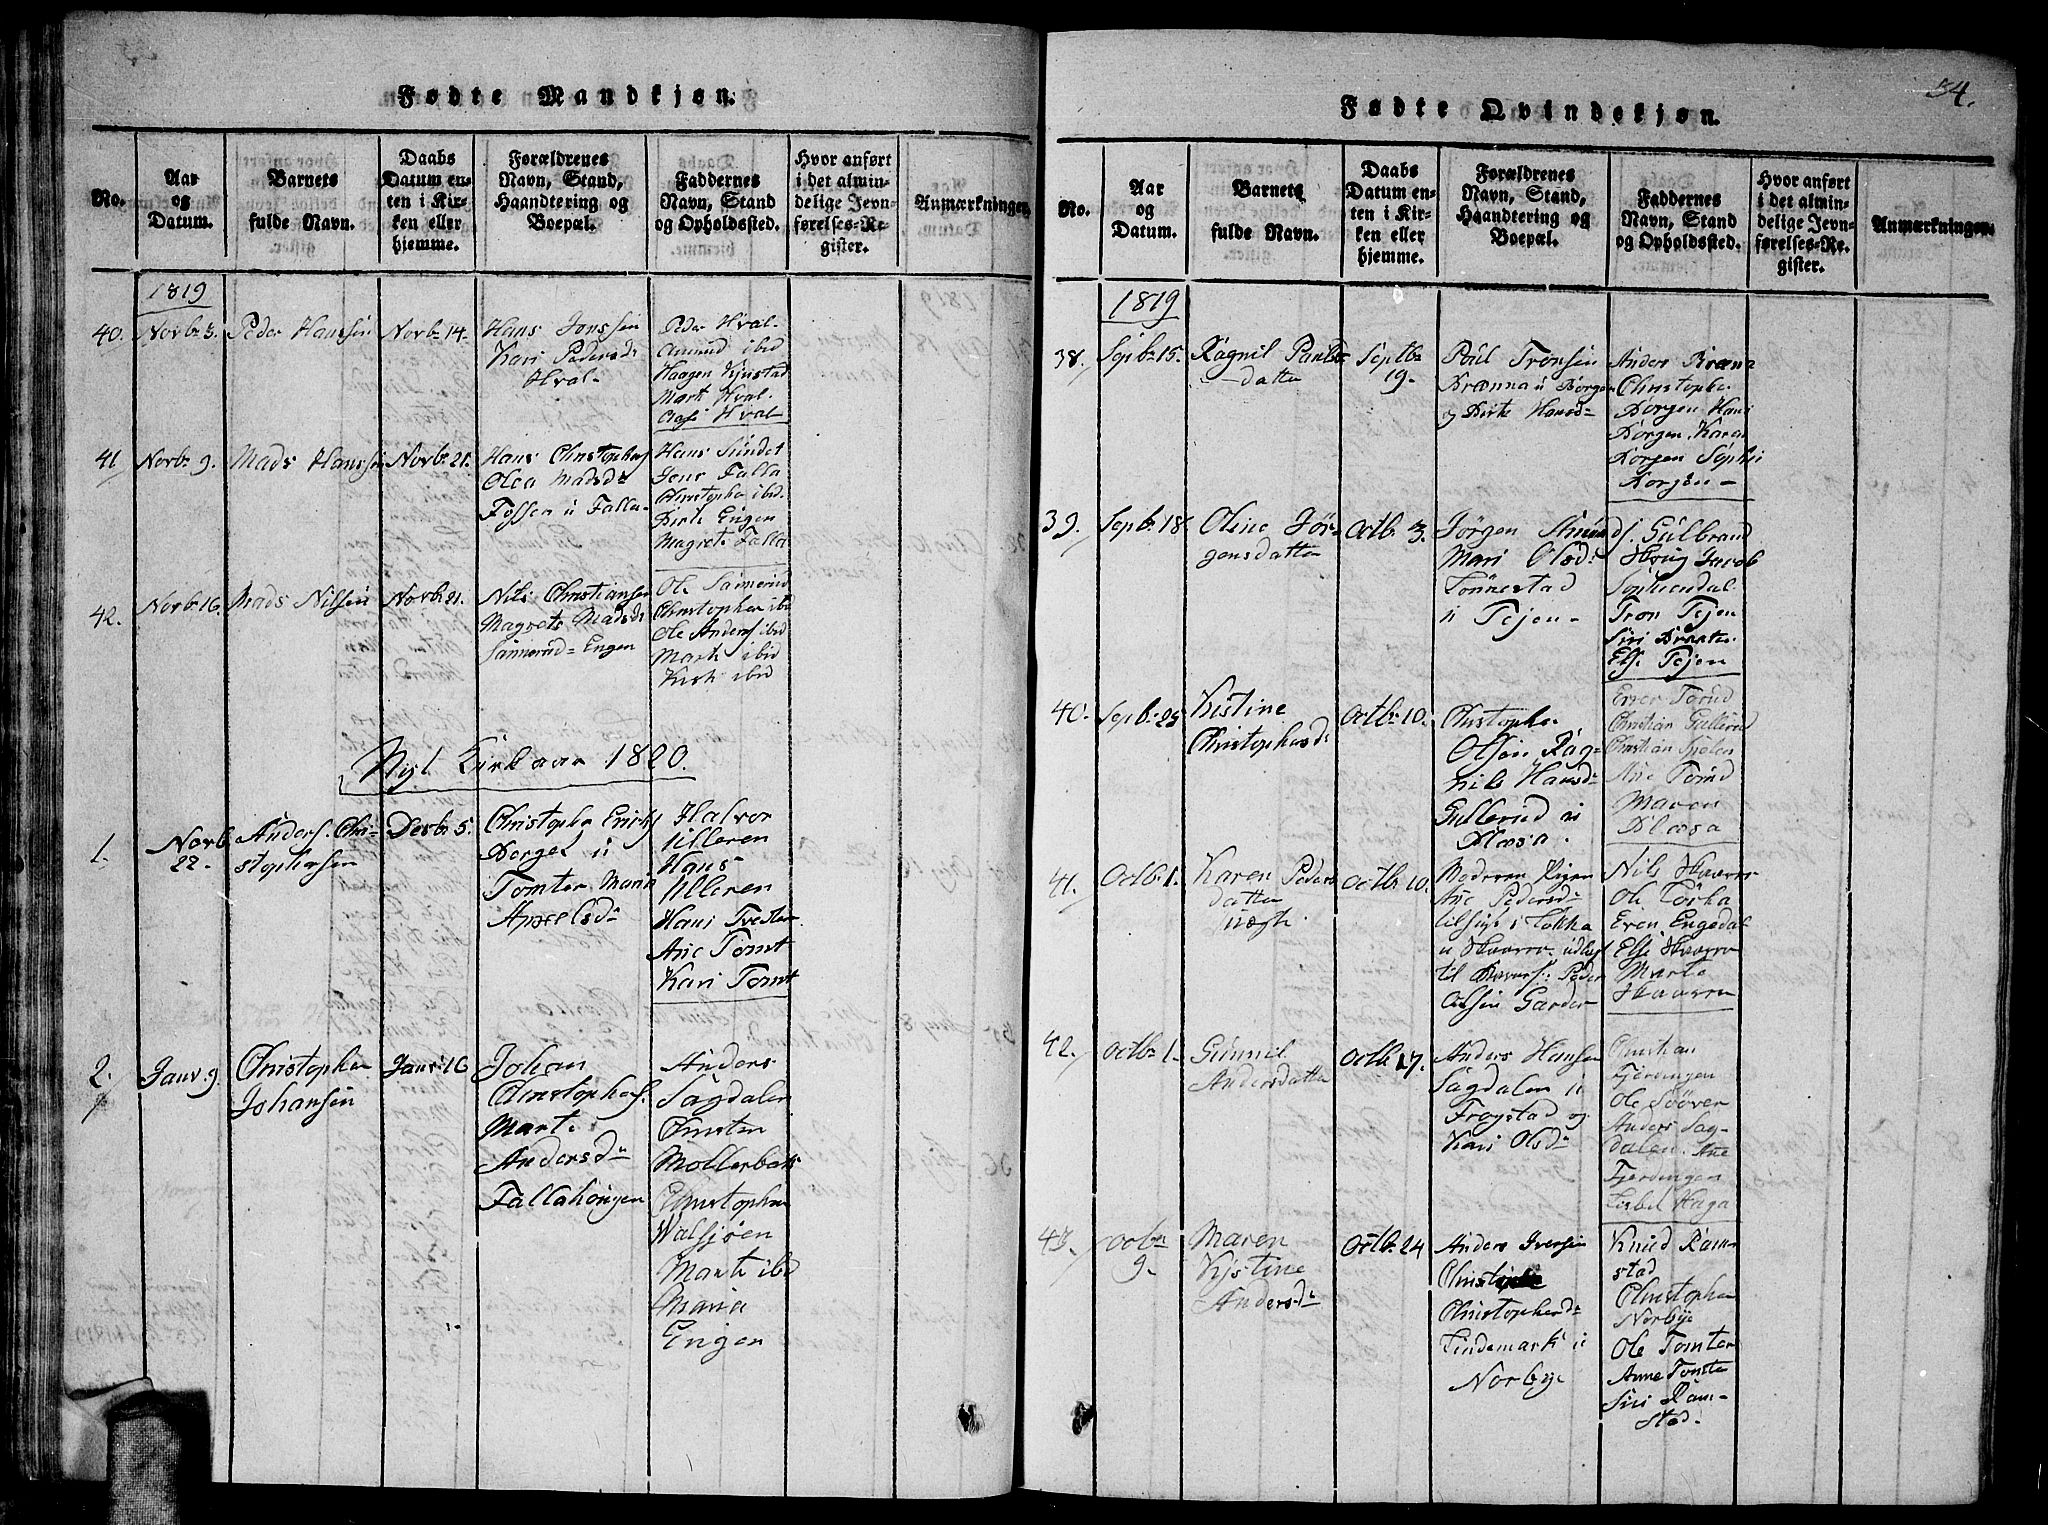 Fødte Mandkjøn.
No.
Aar
og
Datum.
Barnets
fulde Navn.
Daabs
Datum en-
ten i Kir-
ken eller
hjemme.
Forældrenes
Navn, Stand,
Haandtering og
Boepæl.
Faddernes
Navn, Stand
og Opholdssted.
Hvor anført
i det almin-
delige Jevn-
førelses-Re-
gister.
Anmærkninger.
1819
40.
Novb: 3.
Peder Hansen
Novb: 14.
Hans Jonssen
Kari Pedersd:
Hval.
Peder Hval.
Amund ibid
Haagen Kjustad
Mart Hval.
Hval
41
Novb: 9.
Mads Hanssen
Novb: 21.
Hans Christophers
Olea Madsd:
Fossen u Falla
Hans Sundet
Jens Falla
Christopher ibid.
Birte Engen
Magrete Falla
42.
Novb: 16.
Mads Nilsen
Novb: 21.
Nils Christiansen
Magrete Madsd:
Sannerud= Engen
Ole Sannerud
Christopher ibid
Ole Anders ibid
Marte ibid
ibid
Nyt Kirkeaar 1820.
1.
Novb.
22.
Anders Chri-
stophersen
Decb: 5.
Christopher Erichs
Borgel u
Tomter Maria
Axelsd:
Halvor
Ulleren
Hans
Ulleren
Hans Tvester
Ane Tomt
Kari Tomt
2.
Janv: 9
Christopher
Johansen
Janv: 16
Johan
Christophers.
Marte
Andersd:
Fallahøugen
Anders
Sagdalen
Christen
Møllerbak
Christopher
Walsjøen
Marte ibid
Maria
Engen
54.
Fødte Qvindekjøn.
No.
Aar
og
Datum.
Barnets
fulde Navn.
Daabs
Datum en-
ten i Kir-
ken eller
hjemme.
Forældrenes
Navn, Stand,
Haandtering og
Boepæl.
Faddernes
Navn, Stand
og Opholdssted.
Hvor anført
i det almin-
delige Jevn-
førelses-Re-
gister.
Anmærkninger.
1819
38.
Sepb: 15.
Ragnil Pauls-
datter
Septb:
19.
Poul Tronsen
Brænna u Borgen
og Birte Hansd:
Anders Bræna
Christopher
Borgen Hans
Borgen, Karen
Borgen Sophi
Borgen
39.
Sepb: 18.
Olene Jør-
gensdatter
Octb. 3.
Jørgen Amunds.
Mari Olsd:
Tønnestad
u Tejen
Gulbrand
Haug Jacob
Sophiendal.
Tron Tejen
Siri Braate.
Else Tejen
40.
Sepb: 25
Kistine
Christophersd:
Octb: 10.
Christopher
Olsen Rag-
nild Hansd:
Gullerud u
Blæsa.
Even Torud
Christian Gullerud
Christian
Ane Torud
Maren
Blæsa
41.
Octb: 1.
Karen Peders
datter
uægte
Octb: 10.
Moderen Pigen
Ane Pedersd:
tilhuse i Tokka
u Skavar udlagt
til Barnef: Peder
Olsen Garder
Nils Skaaren
Ole Tokka
Even Engedal
Else Skaaren
Marte
Skaaren
42.
Octb: 1.
Gunnil
Andersdatter
Octb 17.
Anders Hansen
Sagdalen u
Frogstad og
Kari Olsd:
Christian
Fjerdingen
Ole
Anders Sag-
dalen. Ane
Fjerdingen
Lisbet Haga
43.
Octb:
9.
Maren
Kjstine
Andersd:
Octb: 24
Anders Iversen
Christophersd:
Lindemark u
Norbye
Knud Ram-
stad
Christopher
Norbye
Ole Tomter
Anne Tomter
Siri Ram-
stad.